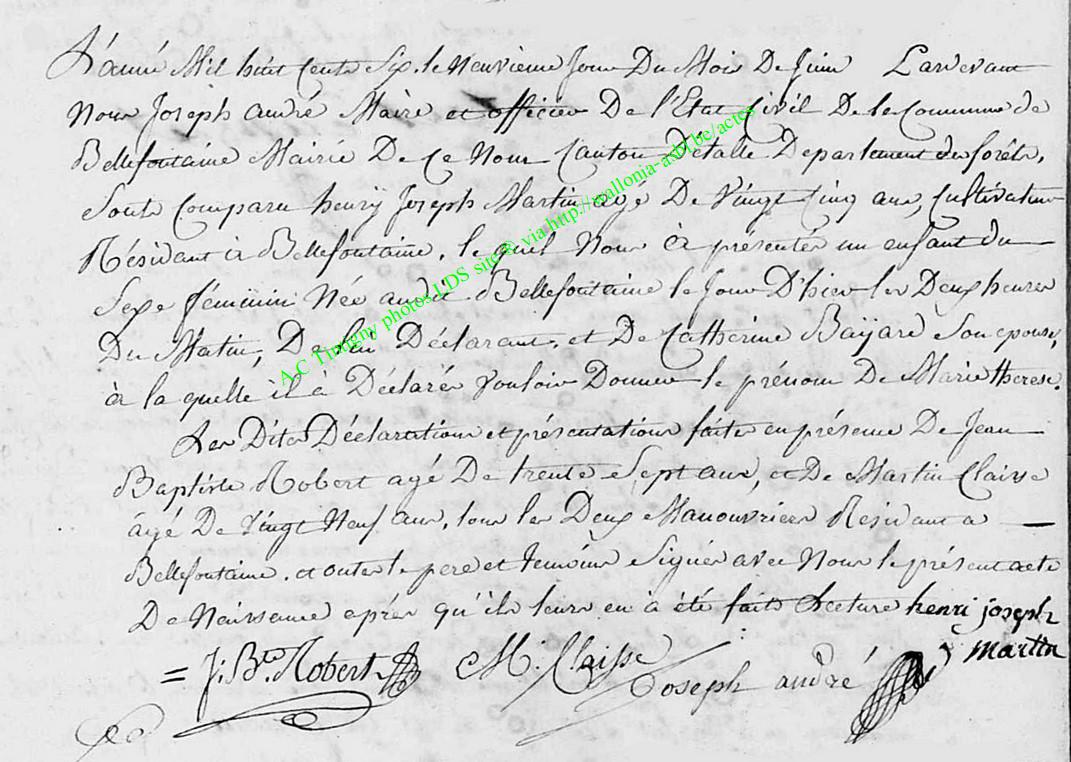 L'année Mil huit Cents Six, le Neuvieme Jour Du Mois De Juin Pardevant
Nous Joseph andré Maire et officier De l'Etat Civil De la Commune de
Bellefontaine Mairie De Ce Nom Canton D'étalle Departement des forêts,
Sont Comparu henrÿ Joseph Martin agé De Vingt Cinq ans, Cultivateur
Résidant à Bellefontaine, le quel Nous à présentér un enfant du
Sexe féminin Née audit Bellefontaine le Jour D'hier les Deux heures
Du Matin, De lui Déclarant, et De Catherine Baÿard Son epouse,
à la quelle il à Déclarér Vouloir Donner le prénom De Marie therese.
Les Dites Déclaration et présentation faite en présence De Jean
Baptiste Robert agé De trente Sept ans, et De Martin Claisse
agé De Vingt Neuf ans, tous les Deux Manouvriers Residant a
Bellefontaine, et ont le pere et temoins Signér avec Nous le présent acte
De Naissance aprés qu'ils leurs en à été faits lecture henri joseph
martin
= J. Bte. Robert M. Claisse Joseph andré
A.C Tintigny photos LDS site® via http://wallonia-asbl.be/actes